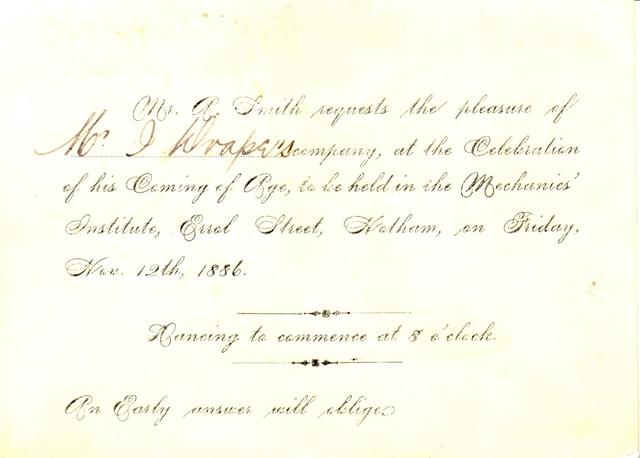 Mr. R. Smith requests the pleasure of
Mr. J Draper's company, at the Celebration
of his Coming of Age, to be held in the Mechanics'
Institute, Errol Street, Hotham, on Friday,
Nov. 12th, 1886.
Dancing to commence at 8 o'clock.
An Early answer will oblige